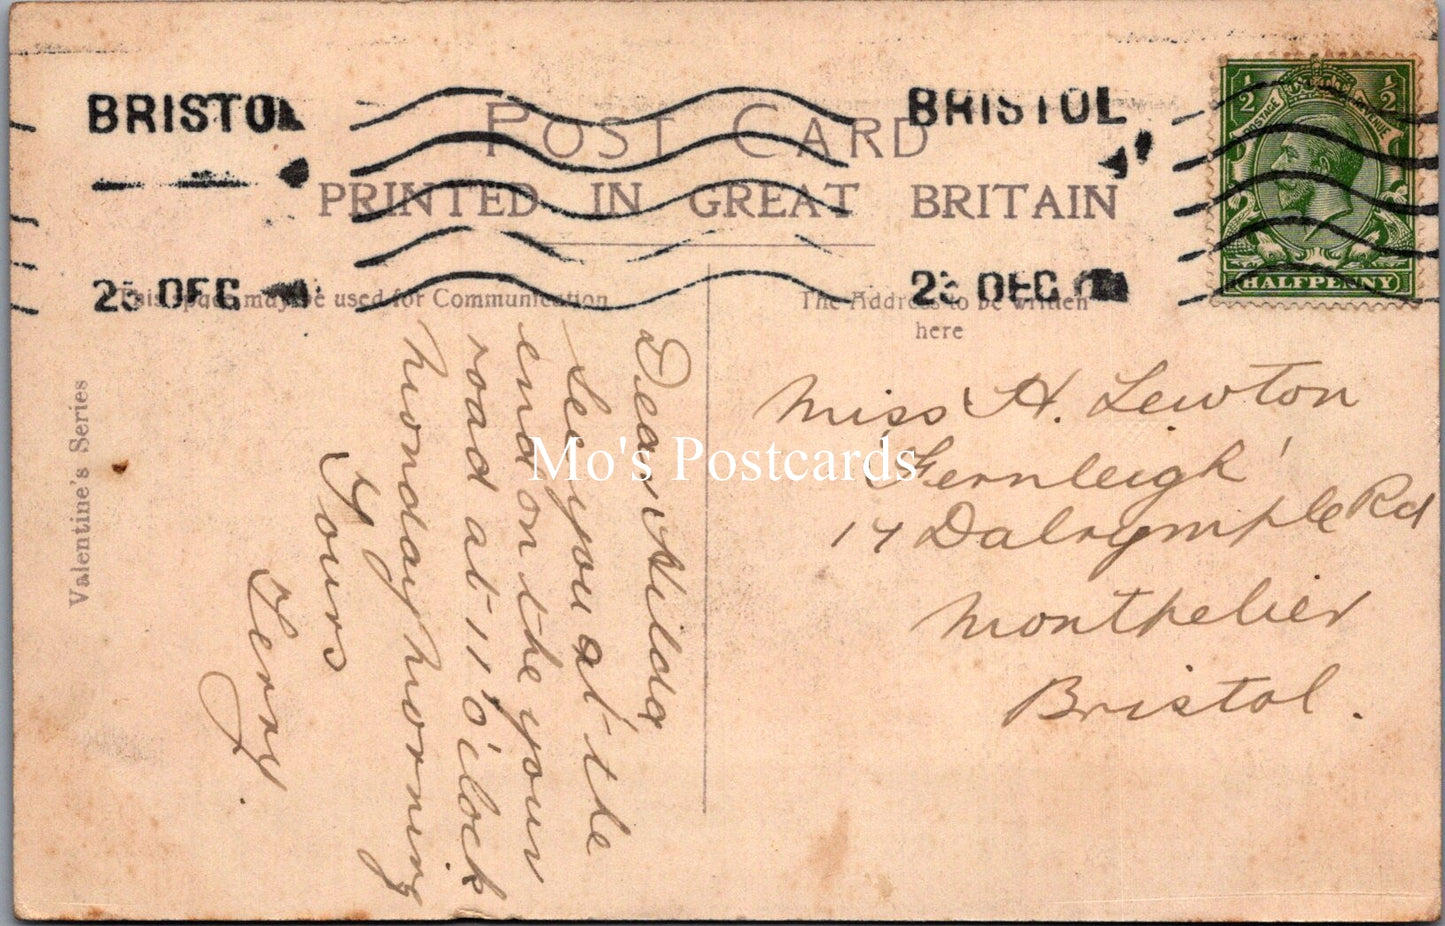 BRISTOL
BRISTOL
POST CARD
PRINTED IN GREAT BRITAIN
DEC
DEC
This space may be used for Communication
The Address to be written
here
1/2 1/2
POSTAGE REVENUE
HALFPENNY
Valentine's Series
Dear Hilda
See you at the
end on the your
road at 11 o'clock
Monday morning
Yours
Gerry.
Miss H. Lewton
'Fernleigh'
14 Dalrymple Rd
Montpelier
Bristol.
Mo's Postcards